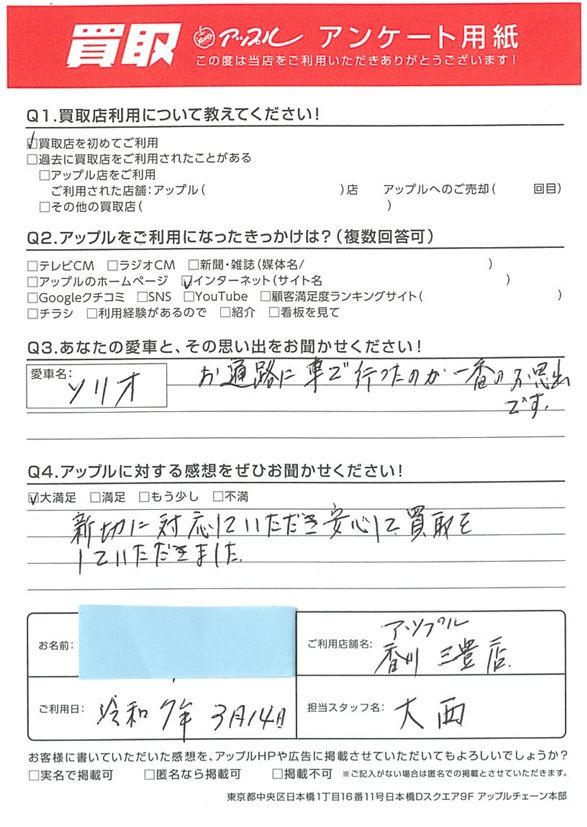 買取 アップル アンケート用紙
この度は当店をご利用いただきありがとうございます！
Q1.買取店利用について教えてください！
☑買取店を初めてご利用
□過去に買取店をご利用されたことがある
□アップル店をご利用
ご利用された店舗：アップル（ ）店 アップルへのご売却（ 回目）
□その他の買取店（ ）
Q2.アップルをご利用になったきっかけは？（複数回答可）
□テレビCM □ラジオCM □新聞・雑誌（媒体名/ ）
□アップルのホームページ ☑インターネット（サイト名 ）
□Googleクチコミ □SNS □YouTube □顧客満足度ランキングサイト（ ）
□チラシ □利用経験があるので □紹介 □看板を見て
Q3.あなたの愛車と、その思い出をお聞かせください！
愛車名：
ソリオ
お遍路に車で行ったのが一番の思出
です。
Q4.アップルに対する感想をぜひお聞かせください！
☑大満足 □満足 □もう少し □不満
親切に対応していただき安心して買取を
していただきました。
お名前：
ご利用店舗名： アップル
香川三豊店.
ご利用日： 令和7年3月14日
担当スタッフ名： 大西
お客様に書いていただいた感想を、アップルHPや広告に掲載させていただいてもよろしいでしょうか？
□実名で掲載可 □匿名なら掲載可 □掲載不可 ※ご記入がない場合は匿名での掲載とさせていただきます。
東京都中央区日本橋1丁目16番11号日本橋Dスクエア9F アップルチェーン本部